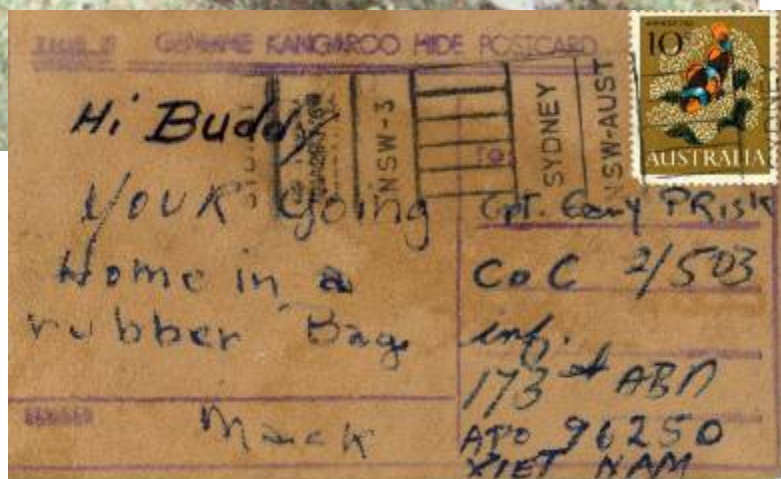 GENUINE KANGAROO HIDE POSTCARD
10c
AUSTRALIA
NSW-3
SYDNEY
NSW-AUST
SYDNEY
Hi Buddy
YOUR Going
Home in a
rubber Bag
Mack
TO:
Cpt. Gary PRisk
Co C 2/503
inf.
173d ABN
APO 96250
VIET NAM